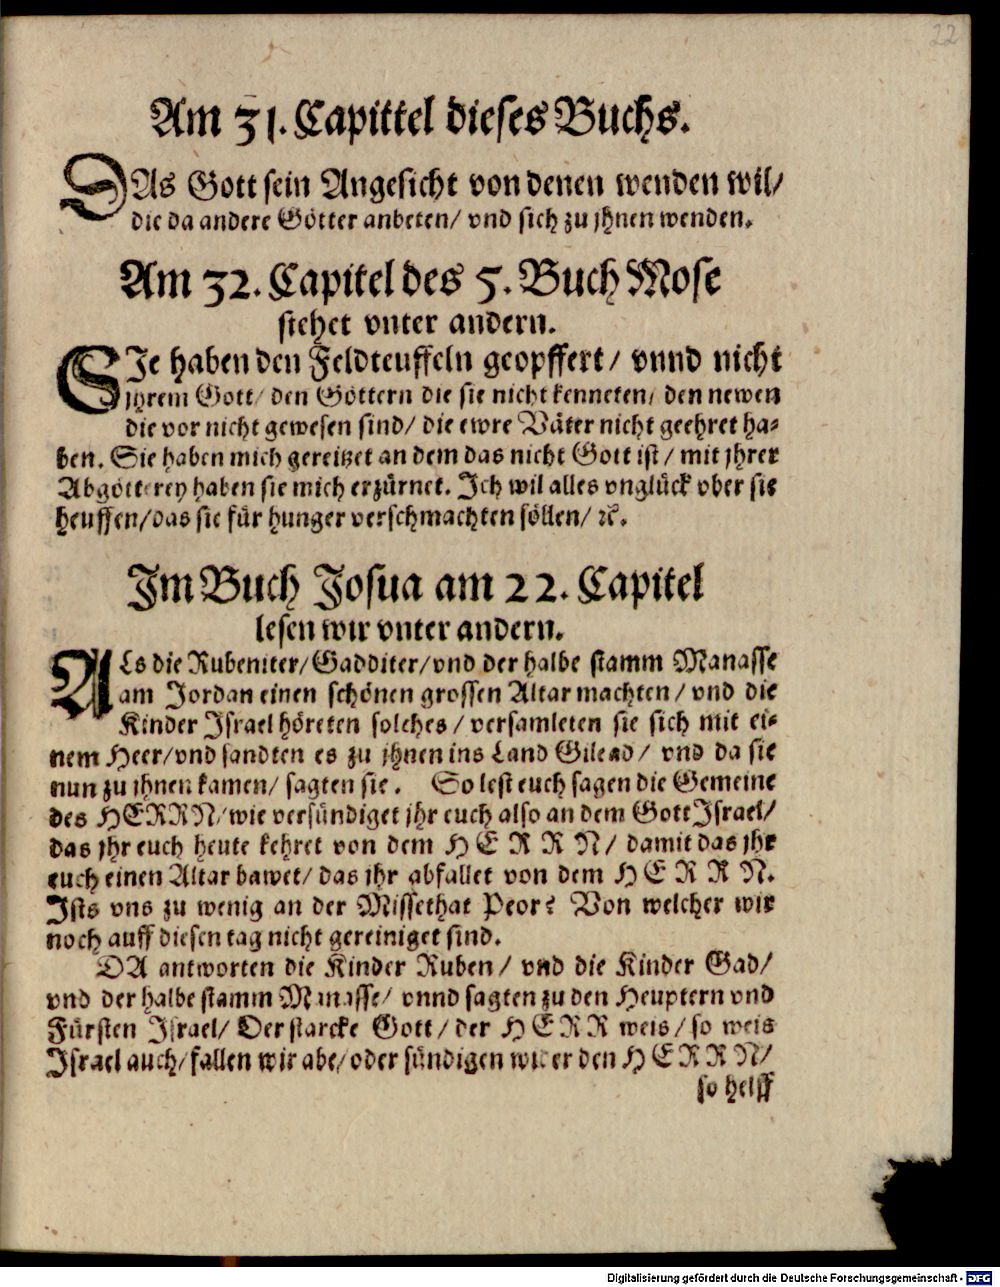 22
Am 31. Capittel dieses Buchs.
DAs Gott sein Angesicht von denen wenden wil/
die da andere Götter anbeten/ vnd sich zu jhnen wenden.
Am 32. Capitel des 5. Buch Mose
stehet vnter andern.
SIe haben den Feldteuffeln geopffert/ vnnd nicht
jhrem Gott/ den Göttern die sie nicht kenneten/ den newen
die vor nicht gewesen sind/ die ewre Väter nicht geehret ha-
ben. Sie haben mich gereitzet an dem das nicht Gott ist/ mit jhrer
Abgötterey haben sie mich erzürnet. Ich wil alles vnglück vber sie
heuffen/ das sie für hunger verschmachten söllen/ ꝛc.
Im Buch Josua am 22. Capitel
lesen wir vnter andern.
ALs die Rubeniter/ Gadditer/ vnd der halbe stamm Manasse
am Jordan einen schönen grossen Altar machten/ vnd die
Kinder Israel höreten solches/ versamleten sie sich mit ei-
nem Heer/ vnd sandten es zu jhnen ins Land Gilead/ vnd da sie
nun zu jhnen kamen/ sagten sie. So lest euch sagen die Gemeine
des HERRN/ wie versündiget jhr euch also an dem Gott Israel/
das jhr euch heute kehret von dem HERRN/ damit das jhr
euch einen Altar bawet/ das jhr abfallet von dem HERRN.
Ists vns zu wenig an der Missethat Peor? Von welcher wir
noch auff diesen tag nicht gereiniget sind.
DA antworten die Kinder Ruben/ vnd die Kinder Gad/
vnd der halbe stamm Manasse/ vnnd sagten zu den Heuptern vnd
Fürsten Israel/ Der starcke Gott/ der HERR weis/ so weis
Israel auch/ fallen wir abe/ oder sündigen wider den HERRN/
so helff
Digitalisierung gefördert durch die Deutsche Forschungsgemeinschaft - DFG